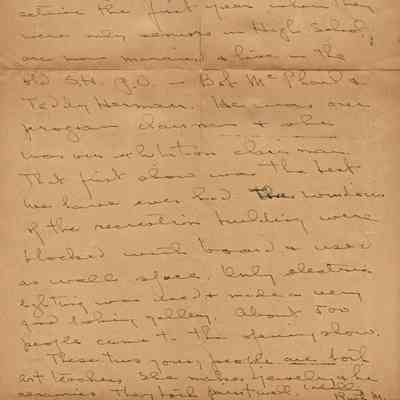 active the first year when they
were only seniors in High School,
are now married & live in the
old S.H. P.O — Bob McPhail &
Teddy Herman. He was our
program chairman & she
was our exhibition chairman.
That first show was the best
we have ever had. The windows
of the recreation building were
blocked with board & used
as wall space. Only electric
lighting was used & made a very
good looking gallery. About 500
people came to the opening show.
These two young people are both
art teachers. She makes jewelry & he
ceramics. They both paint well.